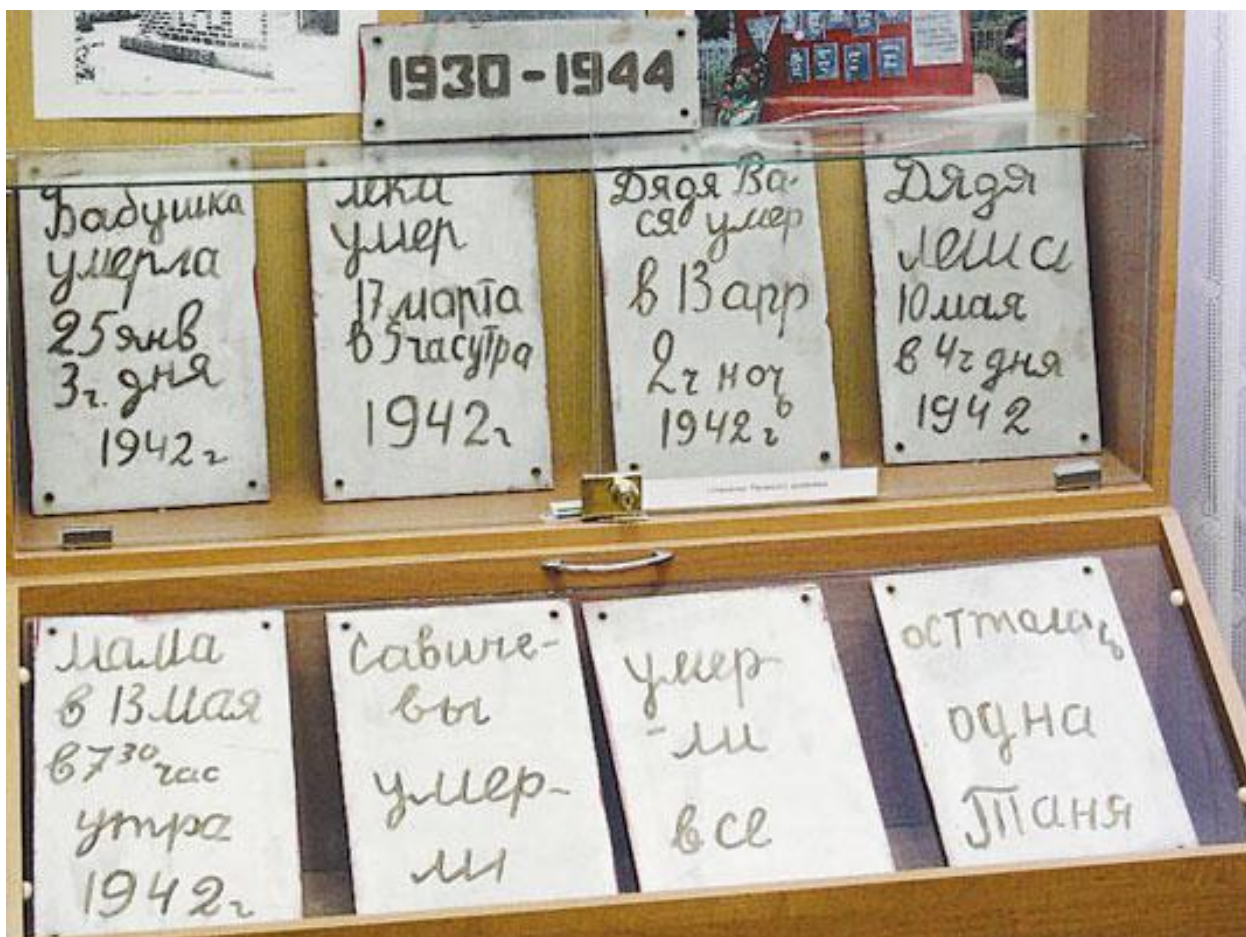 1930-1944
Бабушка
умерла
25 янв
3г. дня
1942г
Лека
умер
17 марта
в 5 часутра
1942г
Дядя Ва-
ся умер
в 13 апр
2ч ночь
1942г
Дядя
Леша
10 мая
в 4ч дня
1942
Мама
в 13 мая
в 7 30 час
утра
1942г
Савиче-
вы
умер-
ли
умер-
-ли
все
осттолась
одна
Таня